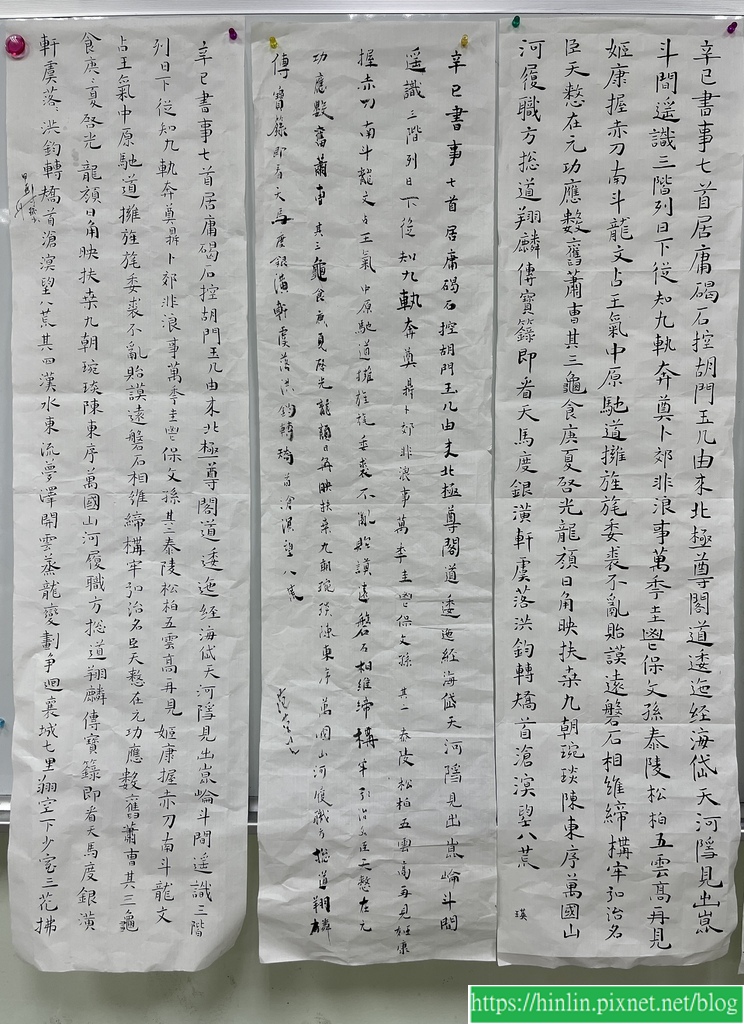 辛巳書事七首居庸碣石控胡門玉几由來北極尊閣道逶迤経海岱天河隱見出崑
斗間遥識三階列日下從知九軌奔奠卜郊非浪事萬季圭鬯保文孫泰陵松柏五雲髙再見
姬康握赤刀南斗龍文占王氣中原馳道擁旌旄委裘不亂貽謨遠磐石相維締構牢弘治名
臣天憗在元功應數舊蕭曹其三龜食庚夏啓光龍顔日角映扶桒九朝琬琰陳東序萬國山
河履職方揔道翔麟傳寶籙即看天馬度銀潢軒虞落洪鈞轉矯首滄溟望八荒
瑛
辛巳書事七首居庸碣石控胡門玉几由来北極尊閣道逶迤経海岱天河隱見出崑崙斗間
遥識三階列日下從知九軌奔奠鼎卜郊非浪事萬季圭鬯保文孫其二泰陵松柏五雲高再見姬康
握赤刀南斗龍文占王氣中原馳道擁旌旄委裘不亂貽謨遠磐石相維締構牢弘治名臣天憗在元
功應數舊蕭曹其三龜食庚夏啓光龍顔日角映扶桒九朝琬琰陳東序萬國山河履職方揔道翔麟
傳寶籙即看天馬度銀潢軒虞落洪鈞轉矯首滄溟望八荒
辛巳書事七首居庸碣石控胡門玉几由来北極尊閣道逶迤経海岱天河隱見出崑崘斗間遥識三階
列日下從知九軌奔奠鼎卜郊非浪事萬季圭鬯保文孫其二泰陵松柏五雲髙再見姬康握赤刀南斗龍文
占王氣中原馳道擁旌旄委裘不亂貽謨遠磐石相維締構牢弘治名臣天憗在元功應數舊蕭曹其三龜
食庚夏啓光龍顔日角映扶桒九朝琬琰陳東序萬國山河履職方揔道翔麟傳寶籙即看天馬度銀潢
軒虞落洪鈞轉矯首滄溟望八荒其四漢水東流夢澤開雲蒸龍變劃爭迴襄城七里翔空下少室三花拂
https://hinlin.pixnet.net/blog